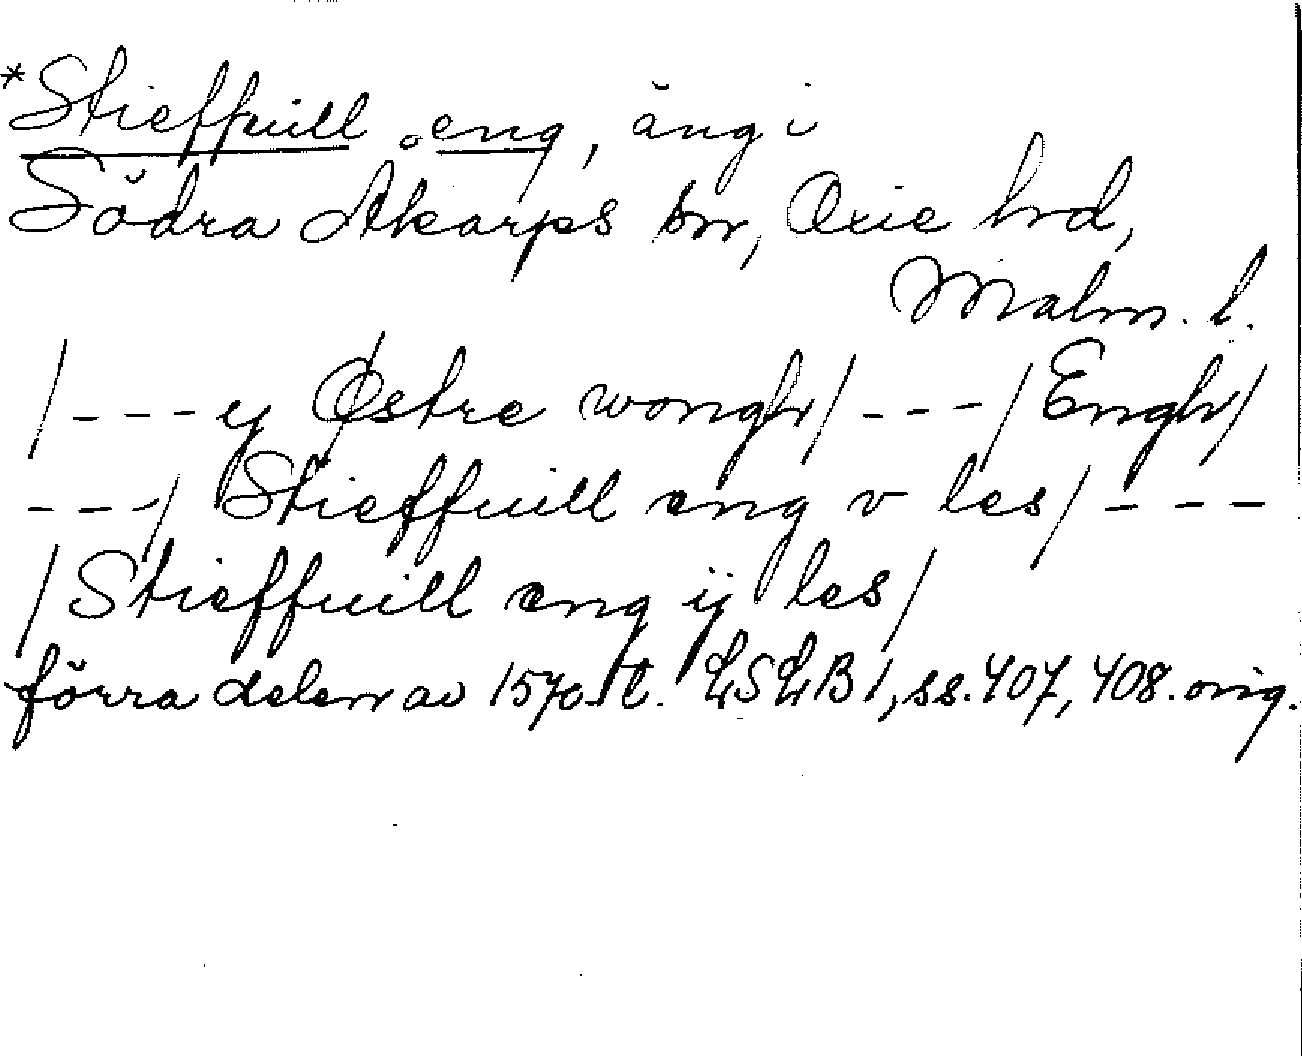 *Stieffuill eng, äng i
Södra Åkarps sn, Oxie hd,
Malm. l.
/---ij Østre wongh/---/Engh/
---/Stieffuill eng v les/---
/Stieffuill eng ij les/
förra delen av 1570-t. LSLB 1, ss. 407, 408. orig.